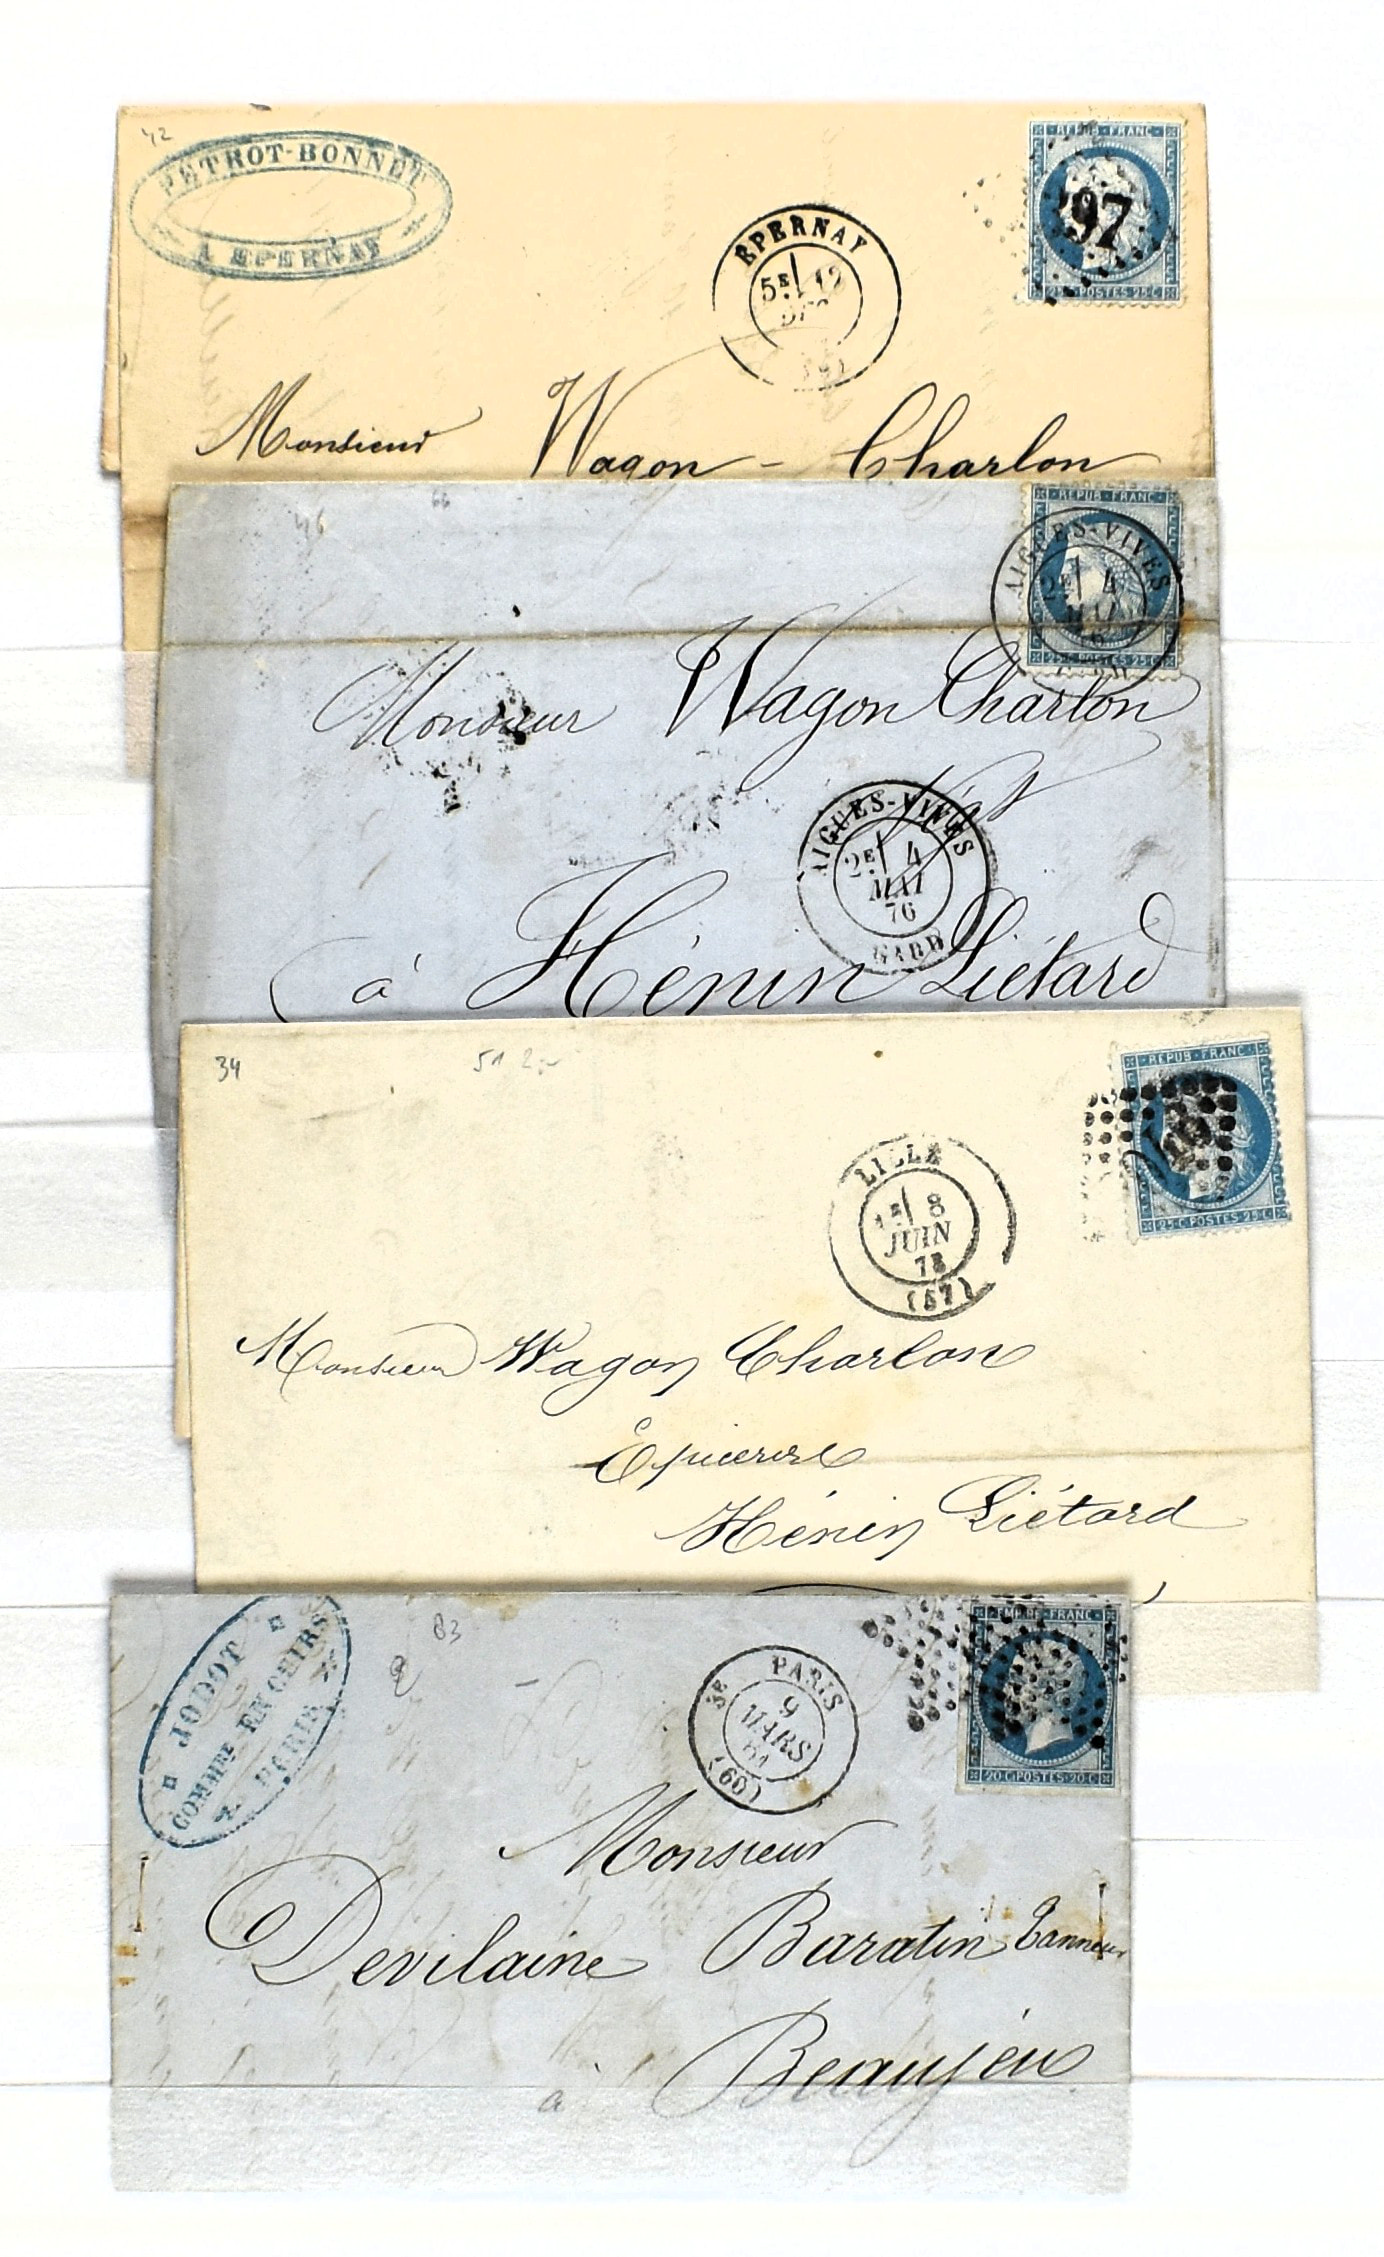 42
PETROT-BONNET
A EPERNAY
EPERNAY
5E 12
REPUB·FRANC
25·C·POSTES·25·C
Monsieur Wagon-Charlon
46 66
REPUB·FRANC
25·C·POSTES·25·C
AIGUES-VIVES
2E 4
MAI
Monsieur Wagon Charlon
AIGUES-VIVES
2E 4
MAI
76
GARD
à Hénin Liétard
34 51
REPUB·FRANC
25·C·POSTES·25·C
LILLE
8
JUIN
(57)
Monsieur Wagon Charlon
Epicerie
Hénin Liétard
JODOT
COMMRE EN CUIRS
A PARIS
83
PARIS
3E 9
MARS
61
(60)
EMPIRE·FRANC
20·C·POSTES·20·C
Monsieur
Devilaine Baratin Tanneur
à Beaujeu